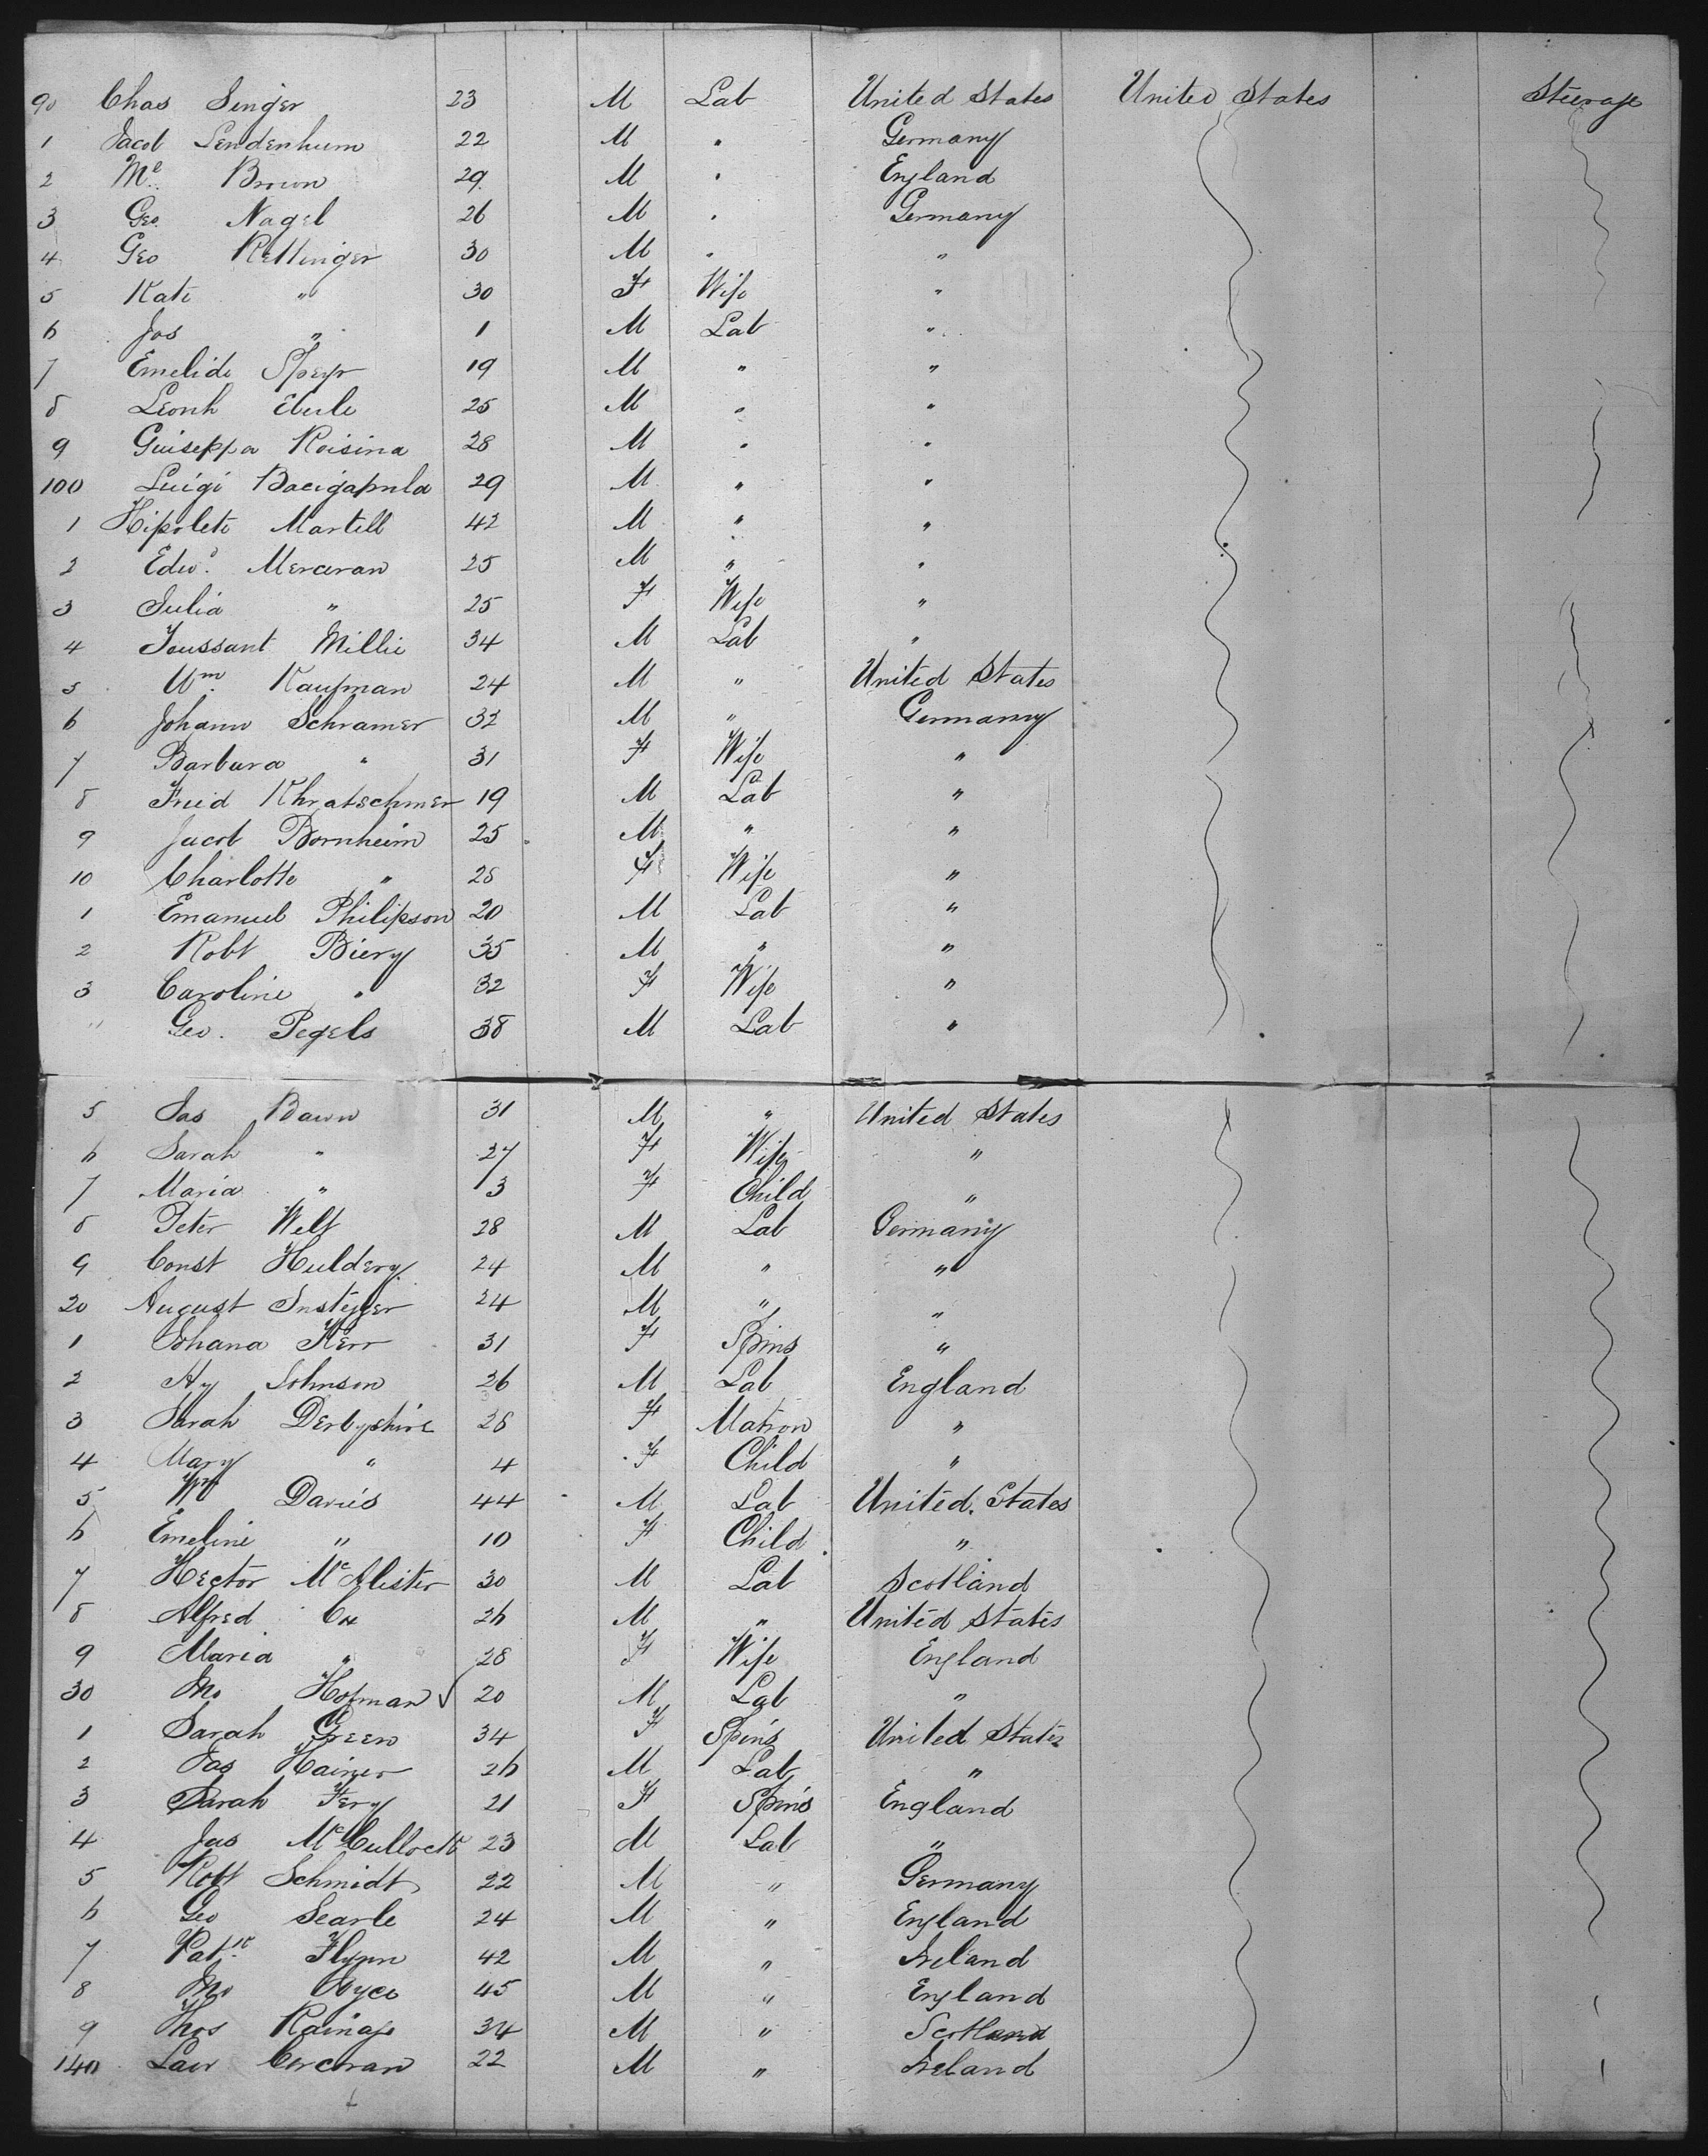 90 Chas Singer 23 M Lab United States United States Steerage
1 Jacob Lendenhum 22 M " Germany
2 Mr Brown 29 M " England
3 Geo. Nagel 26 M " Germany
4 Geo Rettinger 30 M " "
5 Kate " 30 F Wife "
6 Jos " 1 M Lab "
7 Emelide Speyr 19 M " "
8 Leonh Eberle 25 M " "
9 Guiseppa Roisina 28 M " "
100 Luigi Bacigapula 29 M " "
1 Hipolete Martell 42 M " "
2 Edwd. Merceran 25 M " "
3 Julia " 25 F Wife "
4 Toussant Millie 34 M Lab "
5 Wm. Kaufman 24 M " United States
6 Johann Schramer 32 M " Germany
7 Barbara " 31 F Wife "
8 Fried Khratschmer 19 M Lab "
9 Jacob Bornheim 25 M " "
10 Charlotte " 28 F Wife "
1 Emanuel Philipson 20 M Lab "
2 Robt Biery 35 M " "
3 Caroline " 32 F Wife "
" Geo. Pegels 38 M Lab "
5 Jas Bawn 31 M " United States
6 Sarah " 27 F Wife "
7 Maria " 3 F Child "
8 Peter Welt 28 M Lab Germany
9 Const Huldery 24 M " "
20 August Insteger 24 M " "
1 Johana Kerr 31 F Spins "
2 Hy Johnson 26 M Lab England
3 Sarah Derbyshire 28 F Matron "
4 Mary " 4 F Child "
5 Wm Davis 44 M Lab United States
6 Emeline " 10 F Child "
7 Hector McAlister 30 M Lab Scotland
8 Alfred Cox 26 M " United States
9 Maria " 28 F Wife England
30 Mr Hofman √ 20 M Lab "
1 Sarah Green 34 F Spins United States
2 Jas Hainer 26 M Lab "
3 Sarah Fery 21 F Spins England
4 Jas McCulloch 23 M Lab "
5 Robt Schmidt 22 M " Germany
6 Geo Searle 24 M " England
7 Patk. Flynn 42 M " Ireland
8 Mr 45 M " England
9 Thos Rainage 34 M " Scotland
140 Law Corcoran 22 M " Ireland